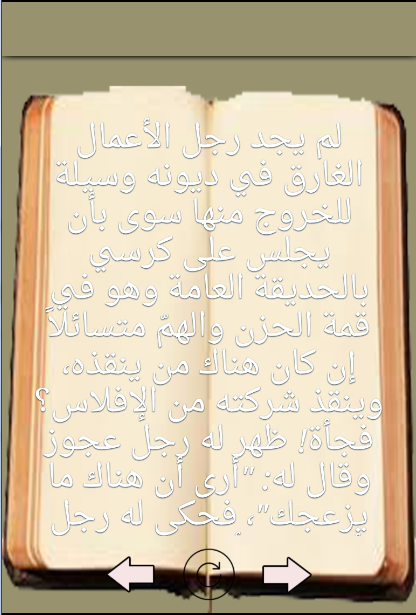 لم يجد رجل الأعمال
الغارق في ديونه وسيلة
للخروج منها سوى بأن
يجلس على كرسي
بالحديقة العامة وهو في
قمة الحزن والهمّ متسائلاً
إن كان هناك من ينقذه،
وينقذ شركته من الإفلاس؟
فجأة! ظهر له رجل عجوز
وقال له: "أرى أن هناك ما
يزعجك"، فحكى له رجل